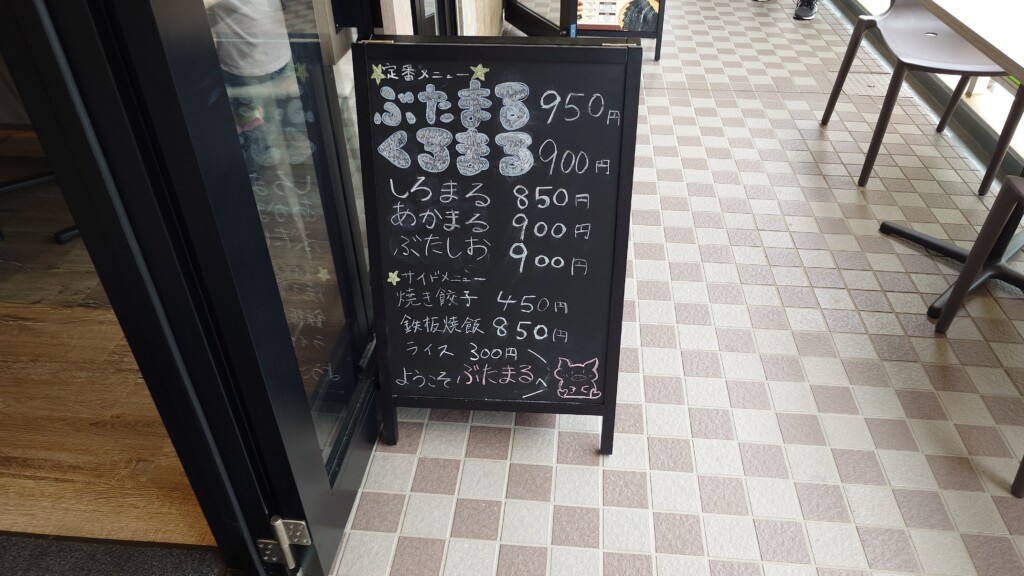 定番メニュー
ぶたまる 950円
くろまる 900円
しろまる 850円
あかまる 900円
ぶたしお 900円
サイドメニュー
焼き餃子 450円
鉄板焼飯 850円
ライス 300円
ようこそ ぶたまる へ